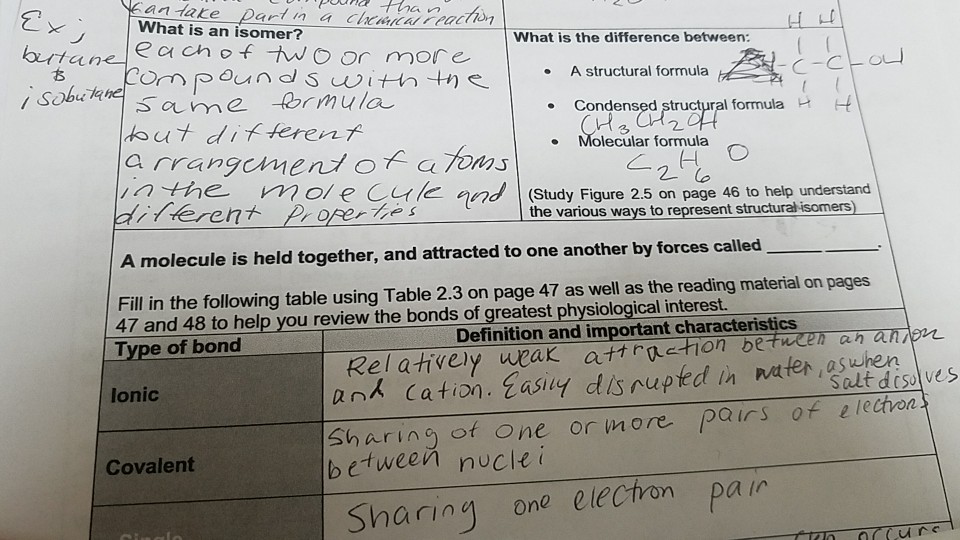 can take part in a chemical reaction
Ex;
butane
&
isobutane
What is an isomer?
each of two or more
compounds with the
same formula
but different
arrangement of atoms
in the molecule and
different properties
What is the difference between:
• A structural formula
H H
C-C-OH
H H
• Condensed structural formula
CH3CH2OH
• Molecular formula
C2H6O
(Study Figure 2.5 on page 46 to help understand
the various ways to represent structural isomers)
A molecule is held together, and attracted to one another by forces called ______ ______.
Fill in the following table using Table 2.3 on page 47 as well as the reading material on pages
47 and 48 to help you review the bonds of greatest physiological interest.
Type of bond
Definition and important characteristics
Ionic
Relatively weak attraction between an anion
and cation. Easily disrupted in water, as when
salt disolves
Covalent
Sharing of one or more pairs of electrons
between nuclei
Single
Sharing one electron pair
occurs